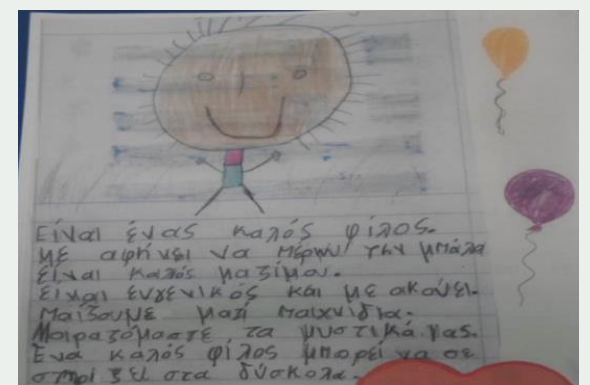 Είναι ένας καλός φίλος.
με αφήνει να παίρνω την μπάλα
είναι καλός μαζίμου.
Είναι ευγενικός και με ακούει.
Παίζουμε μαζί παιχνίδια.
Μοιραζόμαστε τα μυστικά μας.
Ένα καλός φίλος μπορεί να σε
στηρίξει στα δύσκολα.